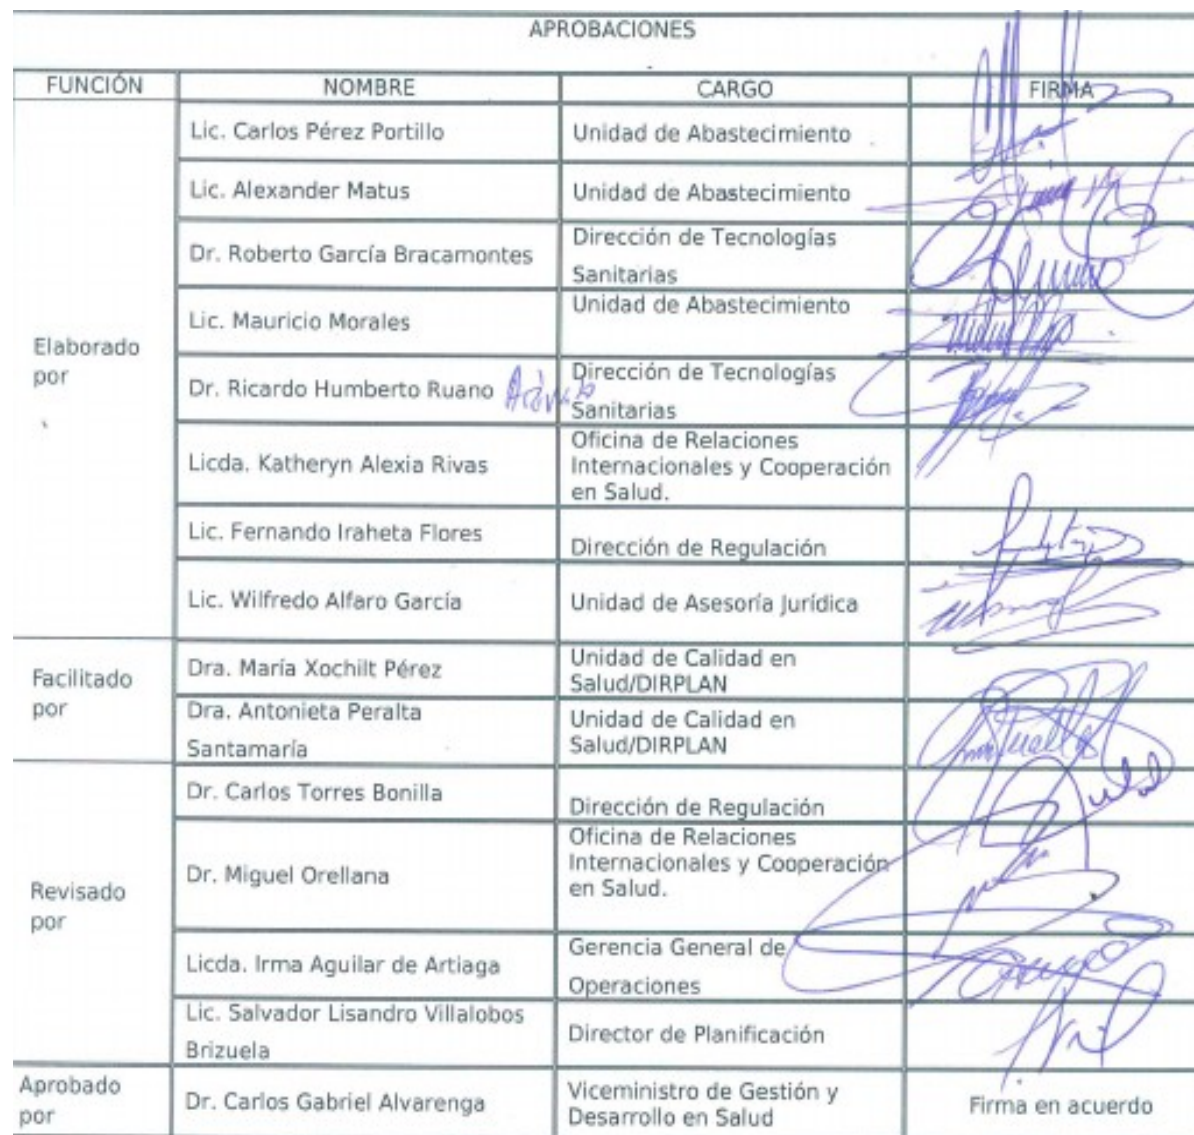 APROBACIONES
FUNCIÓN NOMBRE CARGO FIRMA
Elaborado
por
Lic. Carlos Pérez Portillo Unidad de Abastecimiento
Lic. Alexander Matus Unidad de Abastecimiento
Dr. Roberto García Bracamontes Dirección de Tecnologías
Sanitarias
Lic. Mauricio Morales Unidad de Abastecimiento
Dr. Ricardo Humberto Ruano Arévalo Dirección de Tecnologías
Sanitarias
Licda. Katheryn Alexia Rivas Oficina de Relaciones
Internacionales y Cooperación
en Salud.
Lic. Fernando Iraheta Flores Dirección de Regulación
Lic. Wilfredo Alfaro García Unidad de Asesoría Jurídica
Facilitado
por
Dra. María Xochilt Pérez Unidad de Calidad en
Salud/DIRPLAN
Dra. Antonieta Peralta
Santamaría
Unidad de Calidad en
Salud/DIRPLAN
Revisado
por
Dr. Carlos Torres Bonilla Dirección de Regulación
Dr. Miguel Orellana Oficina de Relaciones
Internacionales y Cooperación
en Salud.
Licda. Irma Aguilar de Artiaga Gerencia General de
Operaciones
Lic. Salvador Lisandro Villalobos
Brizuela
Director de Planificación
Aprobado
por
Dr. Carlos Gabriel Alvarenga Viceministro de Gestión y
Desarrollo en Salud
Firma en acuerdo